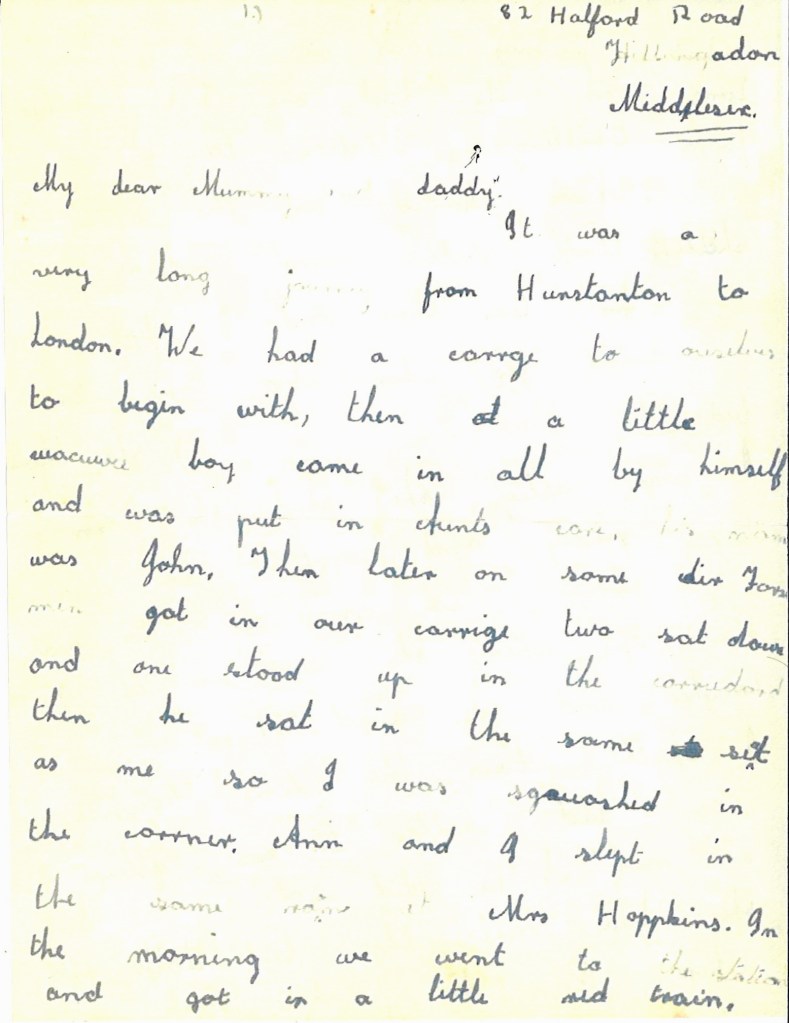 82 Halford Road
Hillingadon
Middplesex.
My dear Mummy daddy.
It was a
very long journey from Hunstanton to
London. We had a carrge to ouselves
to begin with, then a little
boy came in all by himself
and was put in Aunts care, his name
was John. Then later on some Air Force
men got in our carrige two sat down
and one stood up in the
then he sat in the same seit
as me so I was squashed in
the corrner. Ann and I slept in
the same at Mrs Hoppkins. In
the morning we went to the station
and got in a little red train.